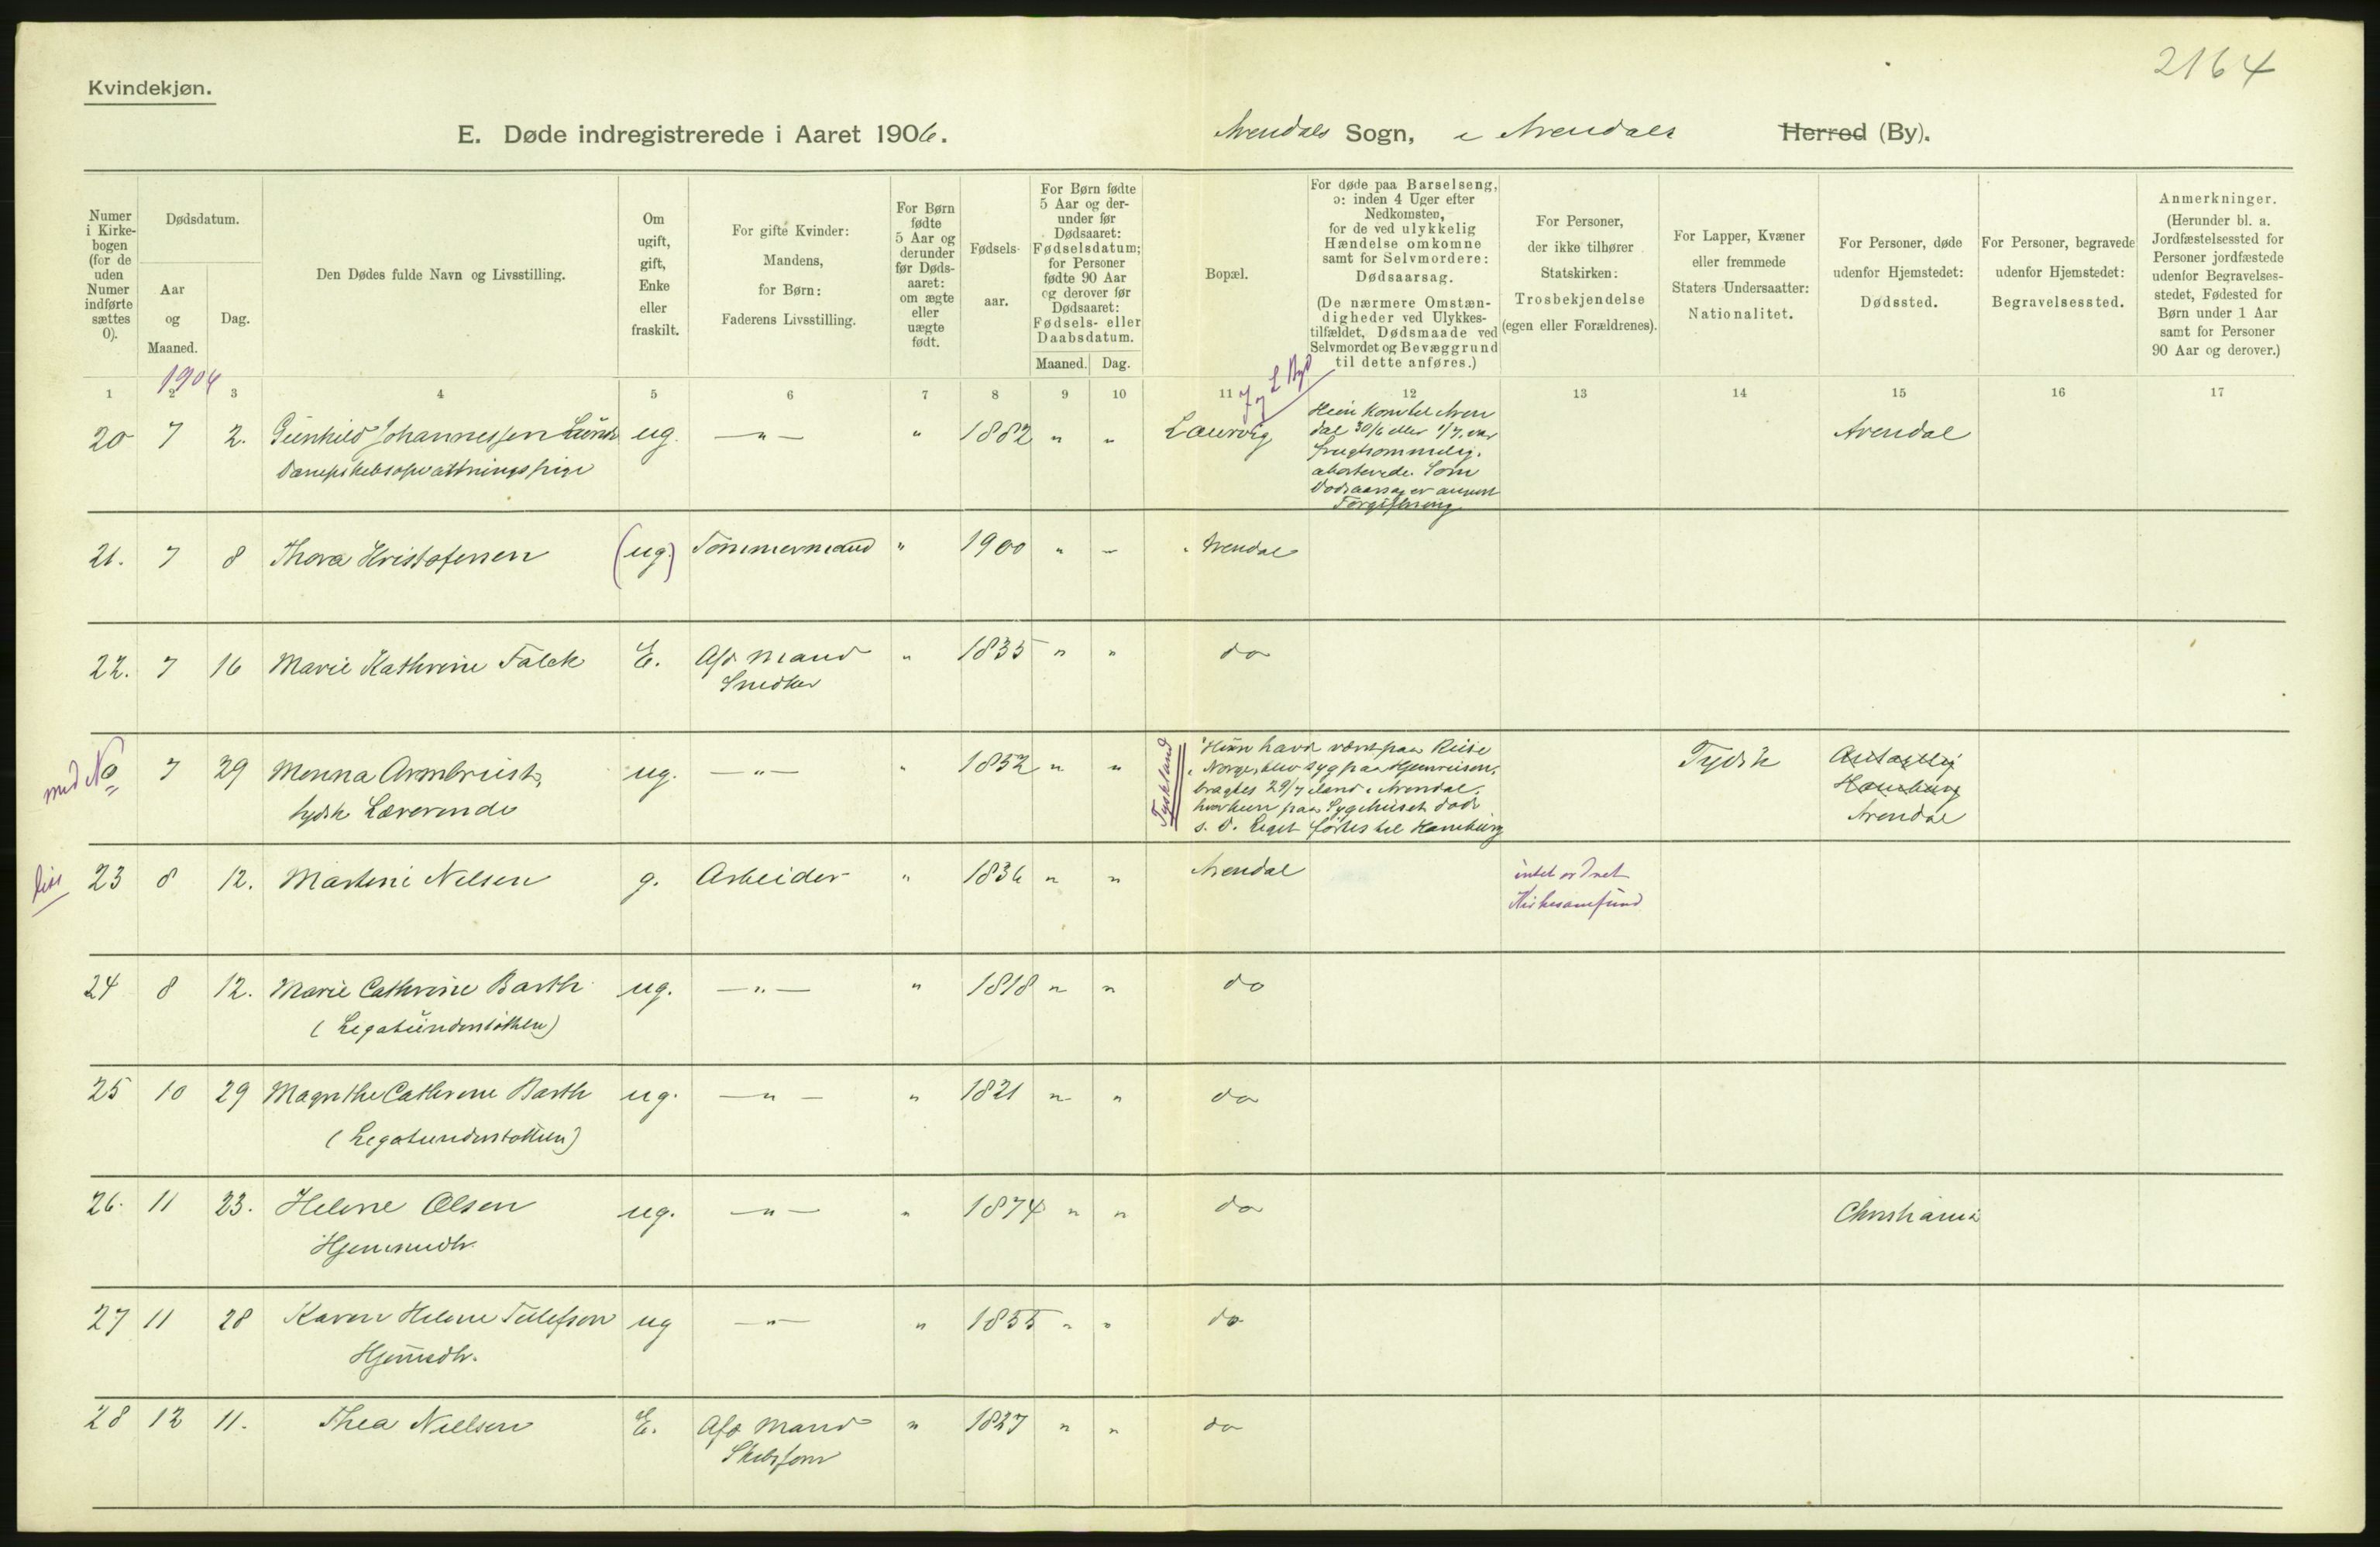 2164
Kvindekjøn.
E. Døde indregistrerede i Aaret 1906. Arendals Sogn, i Arendals Herred (By).
Numer i Kirkebogen (for de uden Numer indførte sættes 0).
Dødsdatum.
Aar og Maaned.
Dag.
Den Dødes fulde Navn og Livsstilling.
Om ugift, gift, Enke eller fraskilt.
For gifte Kvinder: Mandens, for Børn: Faderens Livsstilling.
For Børn fødte 5 Aar og derunder før Dødsaaret: om ægte eller uægte født.
Fødselsaar.
For Børn fødte 5 Aar og derunder før Dødsaaret: Fødselsdatum; for Personer fødte 90 Aar og derover før Dødsaaret: Fødsels- eller Daabsdatum.
Maaned. Dag.
Bopæl.
For døde paa Barselseng, ɔ: inden 4 Uger efter Nedkomsten, for de ved ulykkelig Hændelse omkomne samt for Selvmordere: Dødsaarsag.
(De nærmere Omstændigheder ved Ulykkestilfældet, Dødsmaade ved Selvmordet og Bevæggrund til dette anføres.)
For Personer, der ikke tilhører Statskirken: Trosbekjendelse (egen eller Forældrenes).
For Lapper, Kvæner eller fremmede Staters Undersaatter: Nationalitet.
For Personer, døde udenfor Hjemstedet: Dødssted.
For Personer, begravede udenfor Hjemstedet: Begravelsessted.
Anmerkninger.
(Herunder bl. a. Jordfæstelsessted for Personer jordfæstede udenfor Begravelsesstedet, Fødested for Børn under 1 Aar samt for Personer 90 Aar og derover.)
1906
1 2 3 4 5 6 7 8 9 10 11 12 13 14 15 16 17
20 7 2. Gunhild Johannessen Lunde ug. — " — " 1882 " " Laurvig
Dampskibsopvartningspige
Hun kom til Aren
dal 30/6 eller 1/7, var
frugtsommelig,
aborterede. Som
Dødsaarsag er anført
Forgiftning
Arendal
21. 7 8 Thora Kristofersen (ug.) Tømmermand " 1900 " " Arendal
22. 7 16 Marie Kathrine Falck E. Afd Mand " 1835 " " do
Snedker
med No 7 29 Menna Armbrust, ug. — " — " 1852 " "
tydsk Lærerinde
Tyskland
Hun havde været paa Reise
i Norge, blev syg paa Hjemreisen,
bragtes 29/7 iland i Arendal,
hvor hun paa Sygehuset døde
s. D. Liget førtes til Hamburg
Tydsk
Antagelig
Hamburg
Arendal
23 8 12. Martine Nilsen g. Arbeider " 1836 " " Arendal
intet ordnet
Kirkesamfund
24 8 12. Marie Cathrine Barth ug. — " — " 1818 " " do
(Legatunderstøttet)
25 10 29 Magrethe Cathrine Barth ug. — " — " 1821 " " do
(Legatunderstøttet)
26. 11 23. Helene Olsen ug. — " — " 1874 " " do Christiania
Hjemmedtr.
27 11 28 Karen Helene Tellefsen ug — " — " 1855 " " do
Hjemmedtr.
28 12 11. Thea Nielsen E. Afd Mand " 1827 " " do
Skibstøm